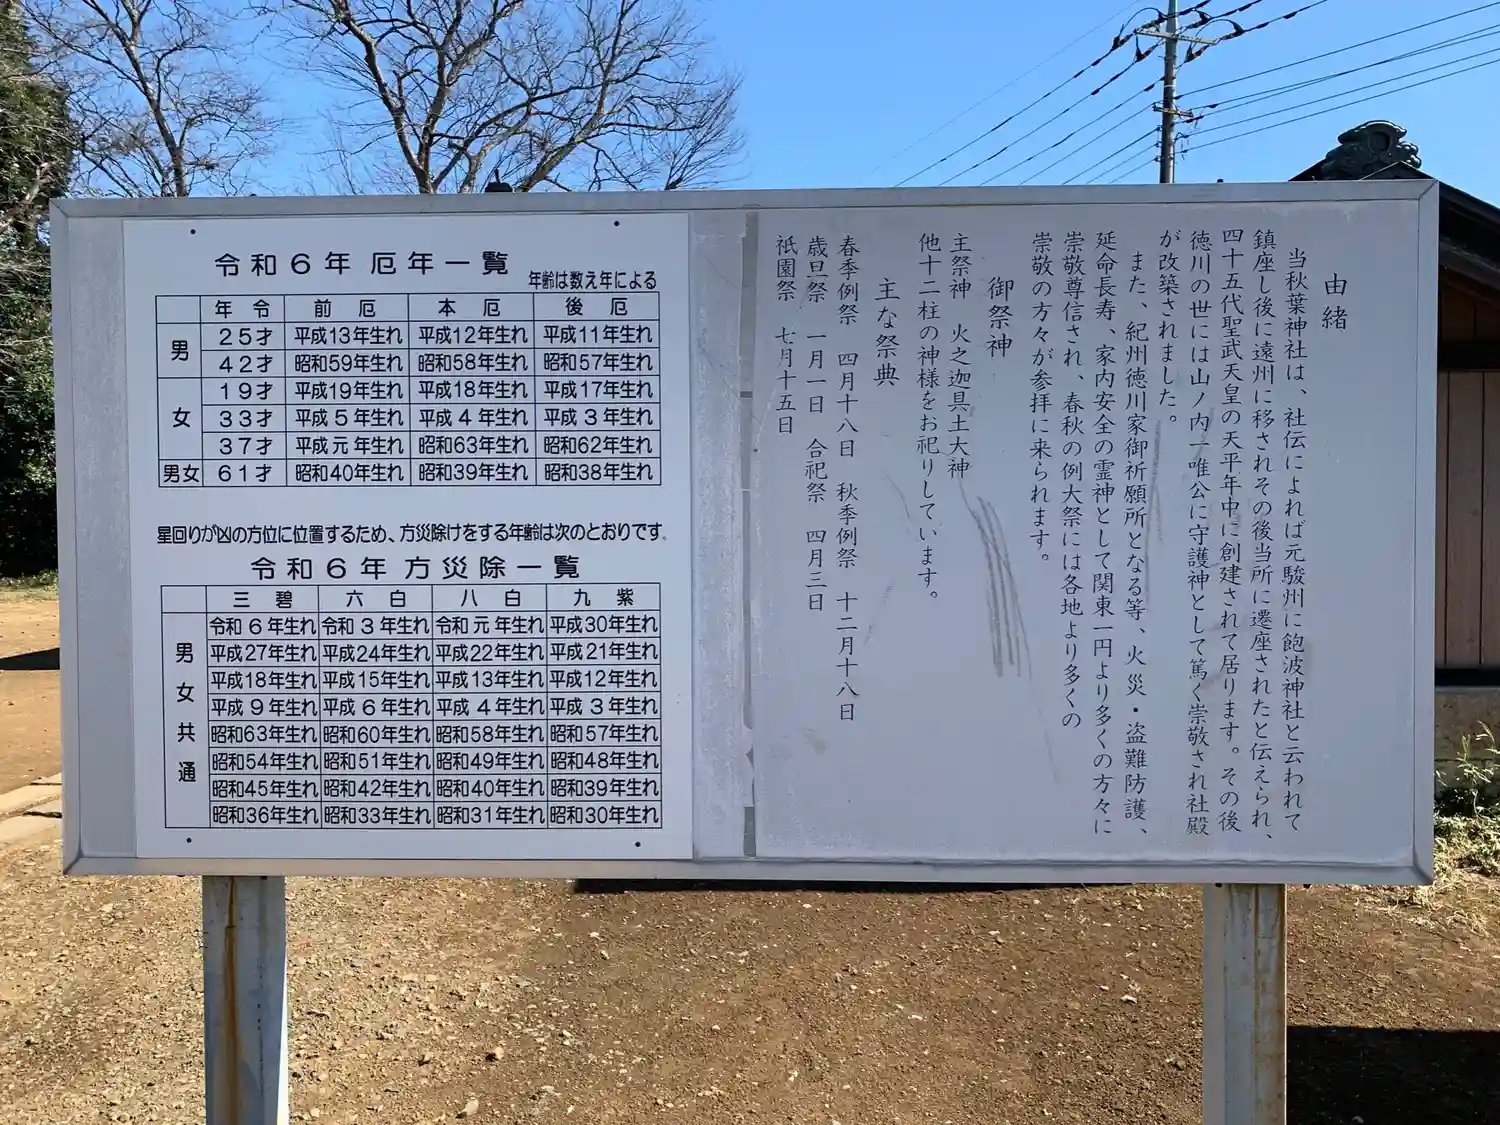 令和6年 厄年一覧
年齢は数え年による
年令 前厄 本厄 後厄
男 25才 平成13年生れ 平成12年生れ 平成11年生れ
42才 昭和59年生れ 昭和58年生れ 昭和57年生れ
女 19才 平成19年生れ 平成18年生れ 平成17年生れ
33才 平成5年生れ 平成4年生れ 平成3年生れ
37才 平成元年生れ 昭和63年生れ 昭和62年生れ
男女 61才 昭和40年生れ 昭和39年生れ 昭和38年生れ
星回りが凶の方位に位置するため、方災除けをする年齢は次のとおりです。
令和6年 方災除一覧
三碧 六白 八白 九紫
男女共通
令和6年生れ 令和3年生れ 令和元年生れ 平成30年生れ
平成27年生れ 平成24年生れ 平成22年生れ 平成21年生れ
平成18年生れ 平成15年生れ 平成13年生れ 平成12年生れ
平成9年生れ 平成6年生れ 平成4年生れ 平成3年生れ
昭和63年生れ 昭和60年生れ 昭和58年生れ 昭和57年生れ
昭和54年生れ 昭和51年生れ 昭和49年生れ 昭和48年生れ
昭和45年生れ 昭和42年生れ 昭和40年生れ 昭和39年生れ
昭和36年生れ 昭和33年生れ 昭和31年生れ 昭和30年生れ
由緒
当秋葉神社は、社伝によれば元駿州に飽波神社と云われて
鎮座し後に遠州に移されその後当所に遷座されたと伝えられ、
四十五代聖武天皇の天平年中に創建されて居ります。その後
徳川の世には山ノ内一唯公に守護神として篤く崇敬され社殿
が改築されました。
また、紀州徳川家御祈願所となる等、火災・盗難防護、
延命長寿、家内安全の霊神として関東一円より多くの方々に
崇敬尊信され、春秋の例大祭には各地より多くの
崇敬の方々が参拝に来られます。
御祭神
主祭神 火之迦具土大神
他十二柱の神様をお祀りしています。
主な祭典
春季例祭 四月十八日 秋季例祭 十二月十八日
歳旦祭 一月一日 合祀祭 四月三日
祇園祭 七月十五日